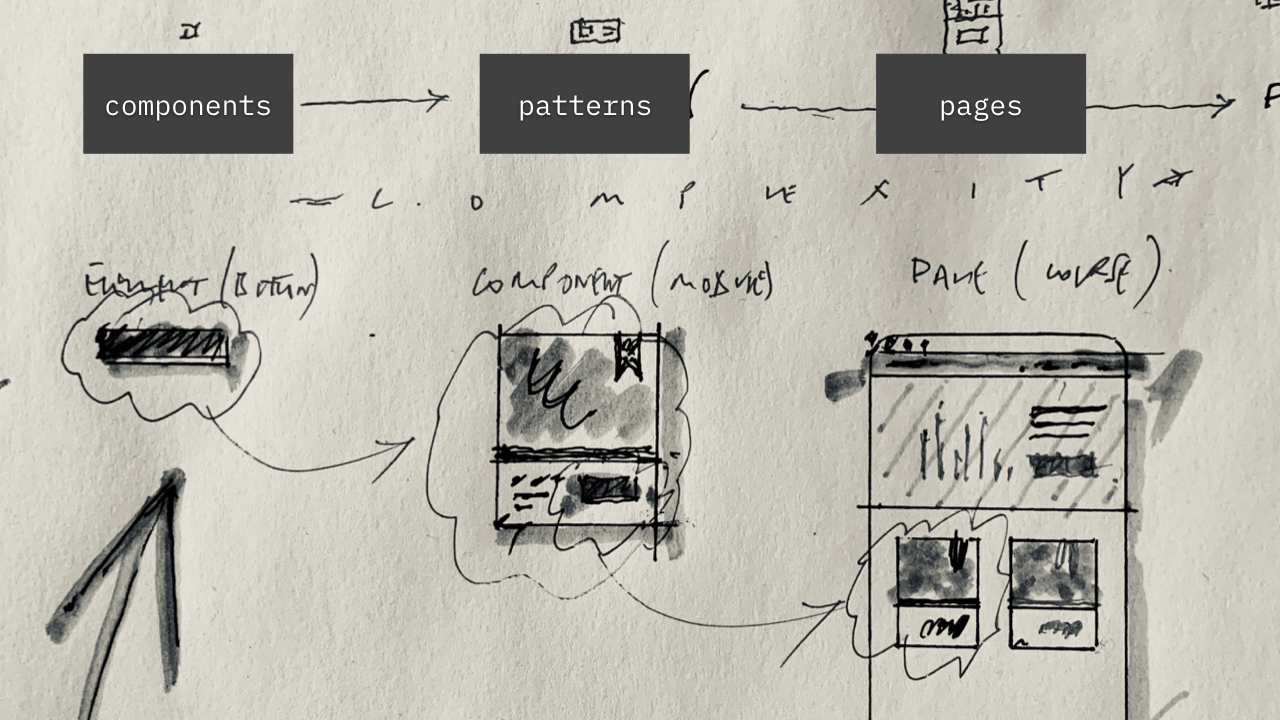 components patterns pages
COMPLEXITY
ELEMENT (BUTTON) COMPONENT (MODULE) PAGE (COURSE)